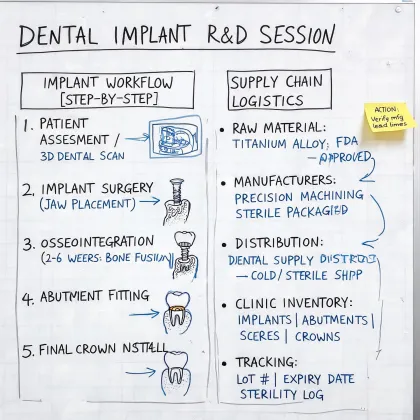 DENTAL IMPLANT R&D SESSION
IMPLANT WORKFLOW
[STEP-BY-STEP]
1. PATIENT
ASSESMENT /
3D DENTAL SCAN
2. IMPLANT SURGERY
(JAW PLACEMENT)
3. OSSEOINTEGRATION
(2-6 WEERS: BONE FUSION)
4. ABUTMENT FITTING
5. FINAL CROWN NSTALL
SUPPLY CHAIN
LOGISTICS
• RAW MATERIAL:
TITANIUM ALLOY; FDA
-APPROVED
• MANUFACTURERS:
PRECISION MACHINING
STERILE PACKAGED
• DISTRIBUTION:
DENTAL SUPPLY
— COLD/STERILE SHPP
• CLINIC INVENTORY:
IMPLANTS | ABUTMENTS |
SCERES | CROWNS
• TRACKING:
LOT # | EXPIRY DATE
STERILITY LOG
ACTION:
Verify mfg
lead times